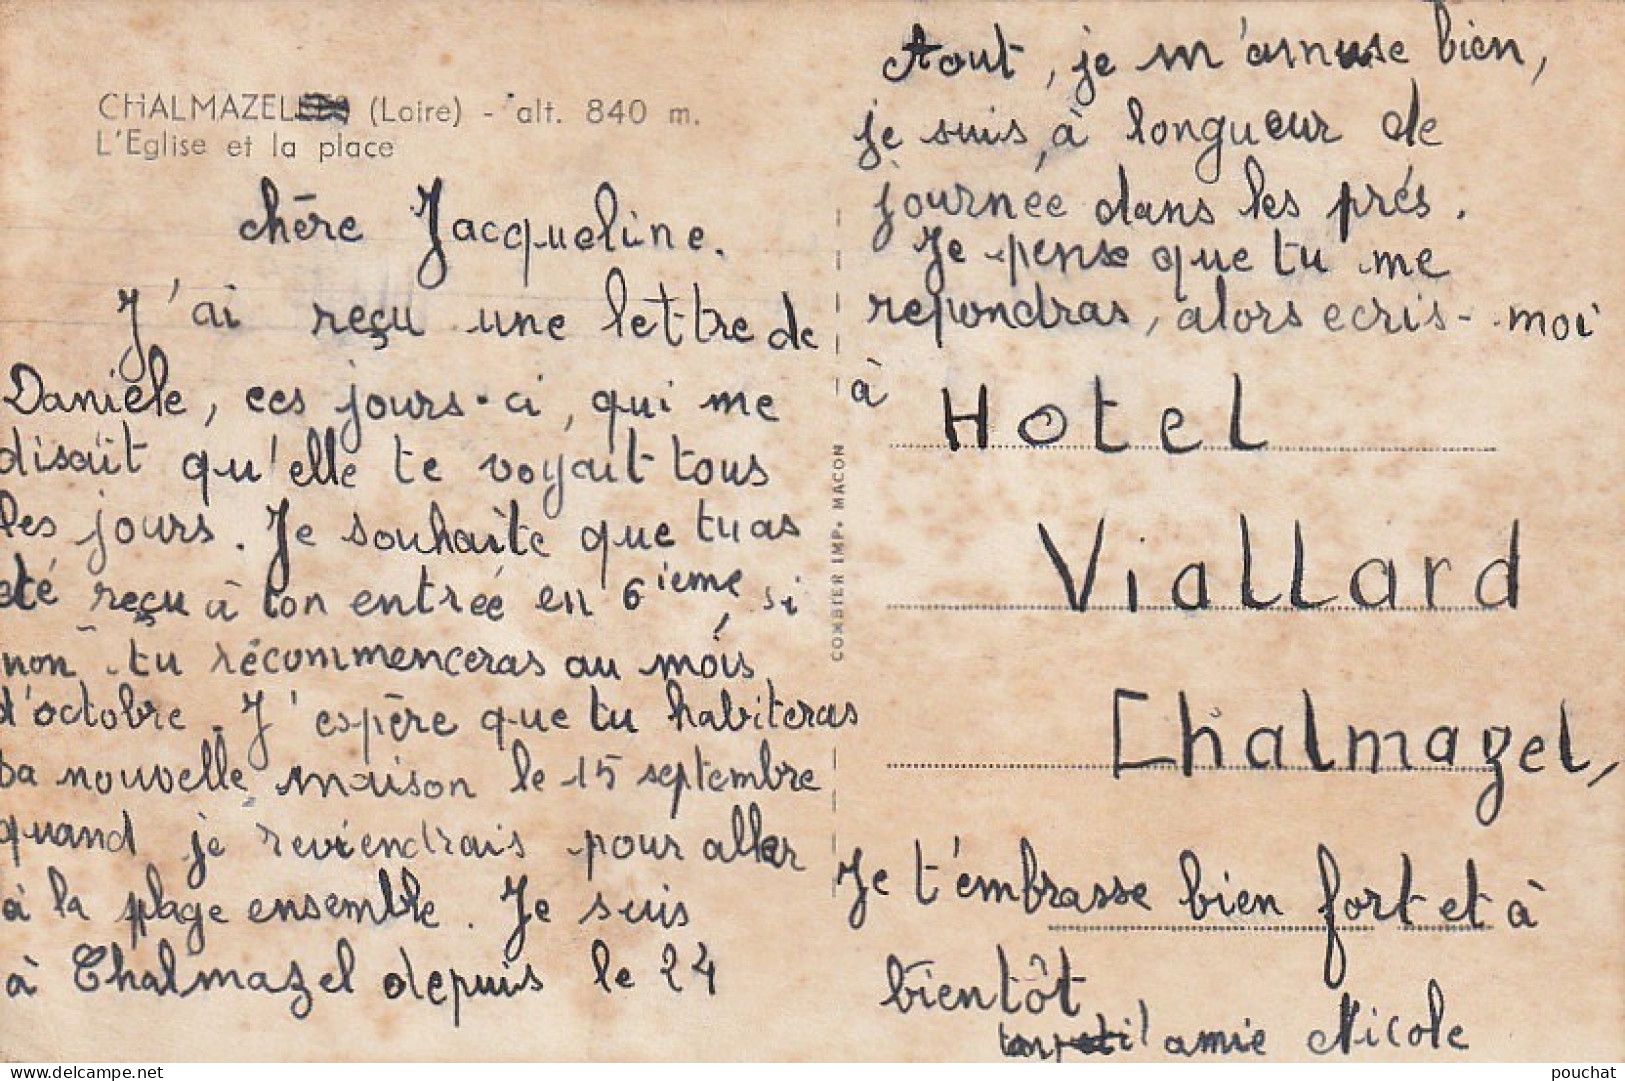 CHALMAZEL (Loire) - alt. 840 m.
L'Eglise et la place
chère Jacqueline.
J'ai reçu une lettre de
Danièle, ces jours-ci, qui me
disait qu'elle te voyait tous
les jours. Je souhaite que tu as
été reçu à ton entrée en 6ieme, si
non tu récommenceras au mois
d'octobre. J'espère que tu habiteras
ta nouvelle maison le 15 septembre
quand je reviendrais pour aller
à la plage ensemble. Je suis
à Chalmazel depuis le 24
Aout, je m'amuse bien,
je suis, à longueur de
journée dans les prés.
Je pense que tu me
repondras, alors ecris-moi
à Hotel
Viallard
Chalmazel,
Je t'embrasse bien fort et à
bientôt
amie Nicole
COMBIER IMP. MACON
pouchat